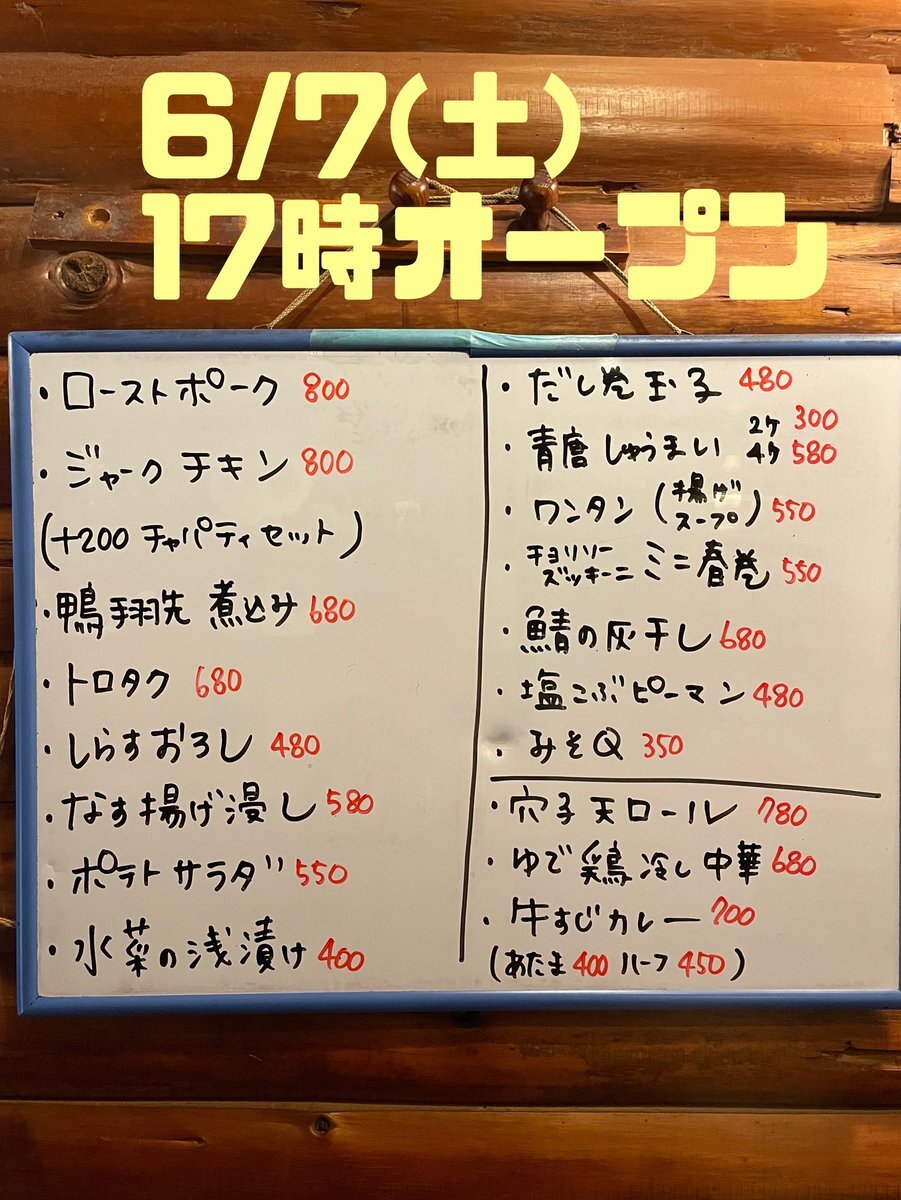 6/7(土)
17時オープン
・ローストポーク 800
・ジャークチキン 800
(+200 チャパティセット)
・鴨手羽先 煮込み 680
・トロタク 680
・しらすおろし 480
・なす揚げ浸し 580
・ポテトサラダ 550
・水菜の浅漬け 400
・だし巻玉子 480
・青唐しゅうまい 2ケ 300
4ケ 580
・ワンタン (揚げ スープ) 550
・チョリソー ズッキーニ ミニ春巻 550
・鯖の灰干し 680
・塩こぶピーマン 480
・みそQ 350
・穴子天ロール 780
・ゆで鶏冷し中華 680
・牛すじカレー 700
(あたま 400 ハーフ 450)